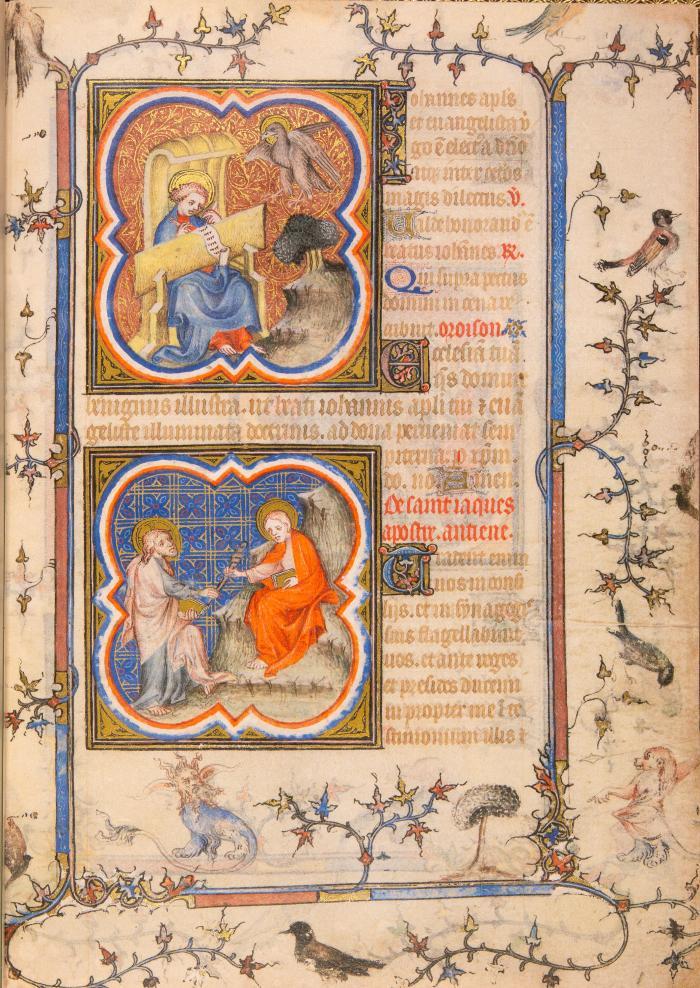 Johannes apls
et euangelista v
go ē electus a dño
inter ceteros
magis dilectus. v.
Valde honorand' ē
beatus iohānes. R.
Qui supra pectus
domini in cena re
cubuit. oroison.
Ecclesiā tuā.
q̄s domine
benignus illustra. ut beati iohannis apli tui ⁊ euā
geliste illuminata doctrinis. ad dona perueniat sem
piterna. p xpm.
do. no. Amen.
De saint iaques
apostre. antiene.
Tradent enim
uos in consi
lijs. et in synagogis
suis flagellabunt
uos. et ante reges
et presides ducemi
ni propter me ī te
stimonium illis ⁊